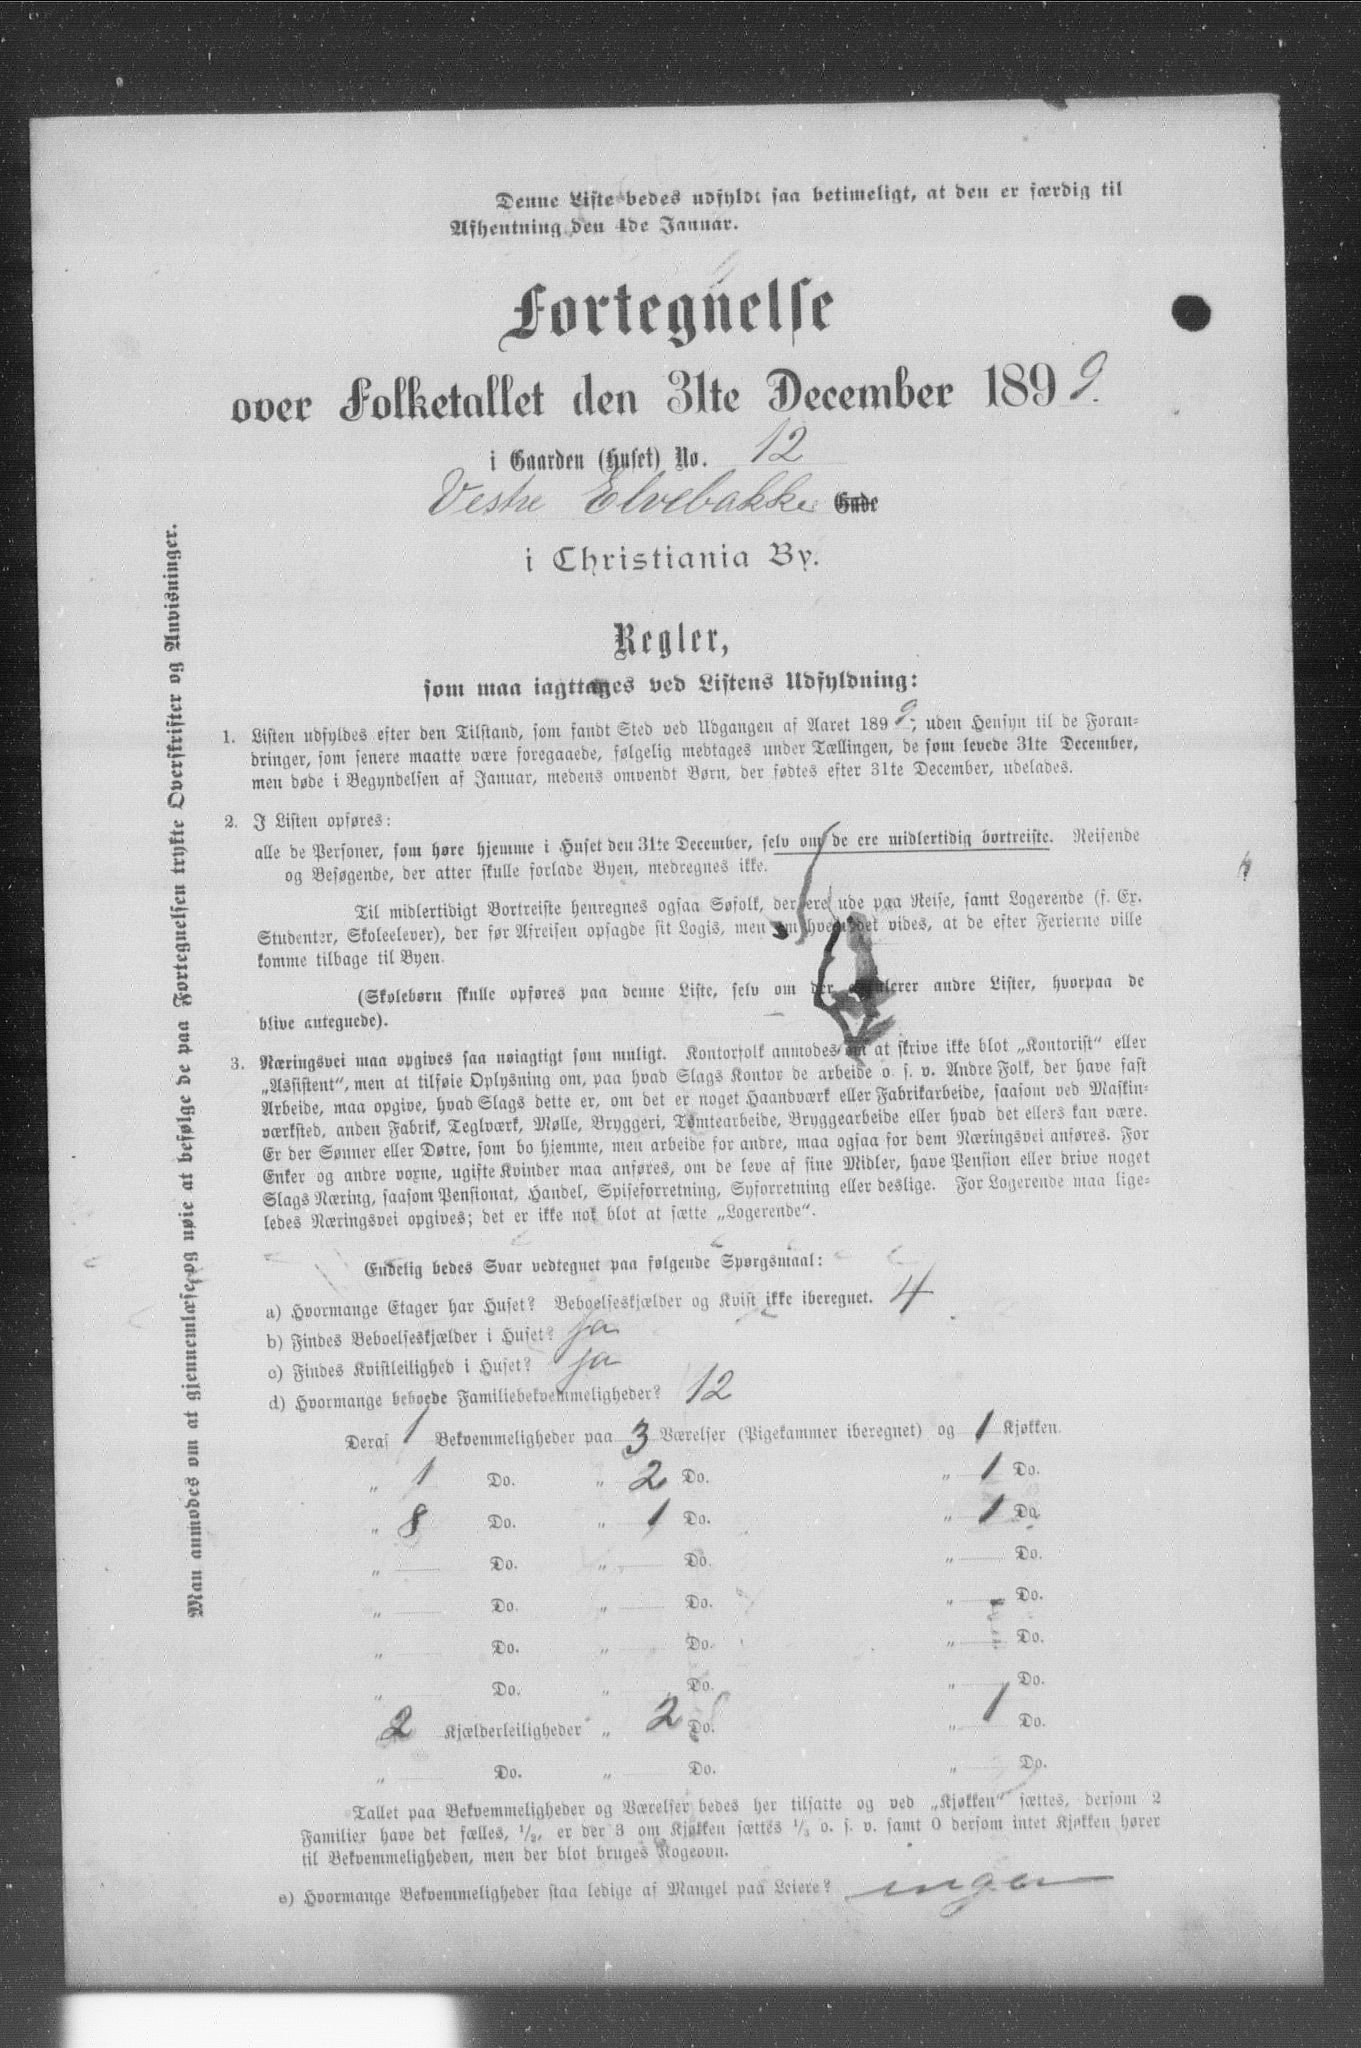 Denne Liste bedes udfyldt saa betimeligt, at den er færdig til
Afhentning den 4de Januar.
Fortegnelse
over Folketallet den 31te December 1899.
i Gaarden (Huset) No. 12
Vestre Elvebakke Gade
i Christiania By.
Regler,
som maa iagttages ved Listens Udfyldning:
1. Listen udfyldes efter den Tilstand, som fandt Sted ved Udgangen af Aaret 1899; uden Hensyn til de Foran-
dringer, som senere maatte være foregaaede, følgelig medtages under Tællingen, de som levede 31te December,
men døde i Begyndelsen af Januar, medens omvendt Børn, der fødtes efter 31te December, udelades.
2. I Listen opføres:
alle de Personer, som høre hjemme i Huset den 31te December, selv om de ere midlertidig bortreiste. Reisende
og Besøgende, der atter skulle forlade Byen, medregnes ikke.
Til midlertidigt Bortreiste henregnes ogsaa Søfolk, der ere ude paa Reise, samt Logerende (f. Ex.
Studenter, Skoleelever), der før Afreisen opsagde sit Logis, men om hvem det vides, at de efter Ferierne ville
komme tilbage til Byen.
(Skolebørn skulle opføres paa denne Liste, selv om der cirkulerer andre Lister, hvorpaa de
blive antegnede).
3. Næringsvei maa opgives saa nøiagtigt som muligt. Kontorfolk anmodes om at skrive ikke blot „Kontorist“ eller
„Assistent“, men at tilføie Oplysning om, paa hvad Slags Kontor de arbeide o. s. v. Andre Folk, der have fast
Arbeide, maa opgive, hvad Slags dette er, om det er noget Haandværk eller Fabrikarbeide, saasom ved Maskin-
værksted, anden Fabrik, Teglværk, Mølle, Bryggeri, Tomtearbeide, Bryggearbeide eller hvad det ellers kan være.
Er der Sønner eller Døtre, som bo hjemme, men arbeide for andre, maa ogsaa for dem Næringsvei anføres. For
Enker og andre voxne, ugifte Kvinder maa anføres, om de leve af sine Midler, have Pension eller drive noget
Slags Næring, saasom Pensionat, Handel, Spiseforretning, Syforretning eller deslige. For Logerende maa lige-
ledes Næringsvei opgives; det er ikke nok blot at sætte „Logerende“.
Endelig bedes Svar vedtegnet paa følgende Spørgsmaal:
a) Hvormange Etager har Huset? Beboelseskjælder og Kvist ikke iberegnet. 4
b) Findes Beboelseskjælder i Huset? ja
c) Findes Kvistleilighed i Huset? ja
d) Hvormange beboede Familiebekvemmeligheder? 12
Deraf 1 Bekvemmeligheder paa 3 Værelser (Pigekammer iberegnet) og 1 Kjøkken.
„ 1 Do. „ 2 Do. „ 1 Do.
„ 8 Do. „ 1 Do. „ 1 Do.
„ Do. „ Do. „ Do.
„ Do. „ Do. „ Do.
„ Do. „ Do. „ Do.
„ Do. „ Do. „ Do.
2 Kjælderleiligheder „ 2 Do. „ 1 Do.
„ Do. „ Do. „ Do.
Tallet paa Bekvemmeligheder og Værelser bedes her tilsatte og ved „Kjøkken“ sættes, dersom 2
Familier have det fælles, 1/2, er der 3 om Kjøkken sættes 1/3 o. s. v. samt 0 dersom intet Kjøkken hører
til Bekvemmeligheden, men der blot bruges Kogeovn.
e) Hvormange Bekvemmeligheder staa ledige af Mangel paa Leiere? ingen
Man anmodes om at gjennemlæse og nøie at befølge de paa Fortegnelsen trykte Overskrifter og Anvisninger.